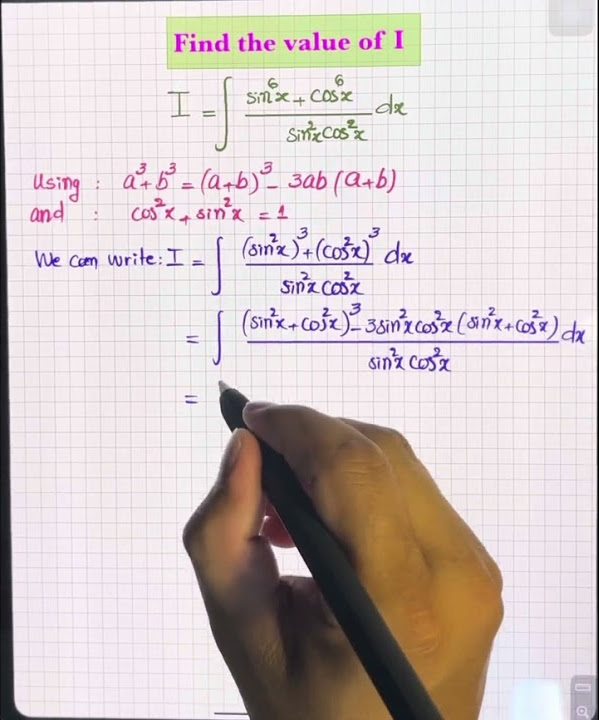 Find the value of I
I = ∫ (sin⁶x + cos⁶x) / (sin²x cos²x) dx
Using : a³+b³ = (a+b)³ - 3ab (a+b)
and : cos²x + sin²x = 1
We can write: I = ∫ ((sin²x)³ + (cos²x)³) / (sin²x cos²x) dx
= ∫ ((sin²x + cos²x)³ - 3sin²x cos²x (sin²x + cos²x)) / (sin²x cos²x) dx
=